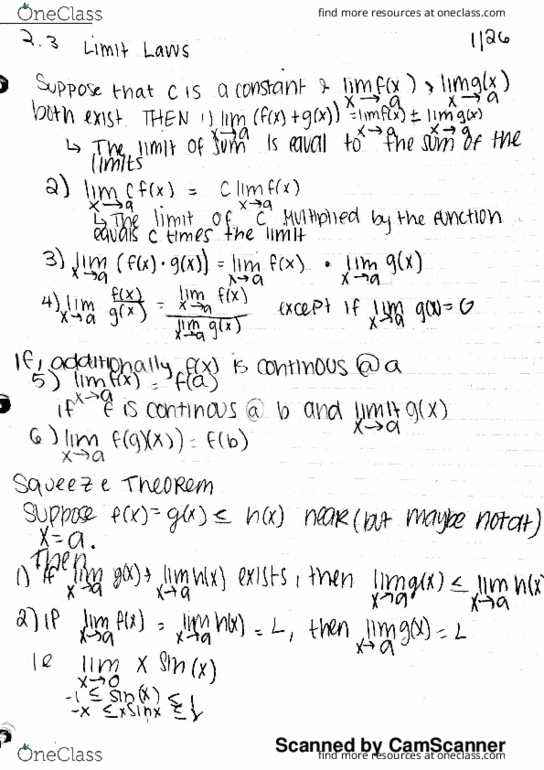 OneClass
find more resources at oneclass.com
2.3 Limit Laws 1/26
Suppose that C is a constant & lim x→a f(x) & lim x→a g(x)
both exist THEN 1) lim x→a (f(x)+g(x)) = lim x→a f(x) ± lim x→a g(x)
↳ The limit of sum is equal to the sum of the
limits
2) lim x→a C f(x) = C lim x→a f(x)
↳ The limit of C multiplied by the function
equals C times the limit
3) lim x→a (f(x) · g(x)) = lim x→a f(x) · lim x→a g(x)
4) lim x→a f(x)/g(x) = lim x→a f(x) / lim x→a g(x) except if lim x→a g(x) = 0
If, additionally f(x) is continous @ a
5) lim x→a f(x) = f(a)
if f is continous @ b and limit x→a g(x)
6) lim x→a f(g)(x)) = f(b)
Squeeze Theorem
Suppose f(x) = g(x) ≤ h(x) near (but maybe not at)
x = a.
Then
1) if lim x→a g(x) & lim x→a h(x) exists, then lim x→a g(x) ≤ lim x→a h(x
2) if lim x→a f(x) = lim x→a h(x) = L, then lim x→a g(x) = L
ie lim x→0 x sin(x)
-1 ≤ sin(x) ≤ 1
-x ≤ x sinx ≤
Scanned by CamScanner
OneClass
find more resources at oneclass.com